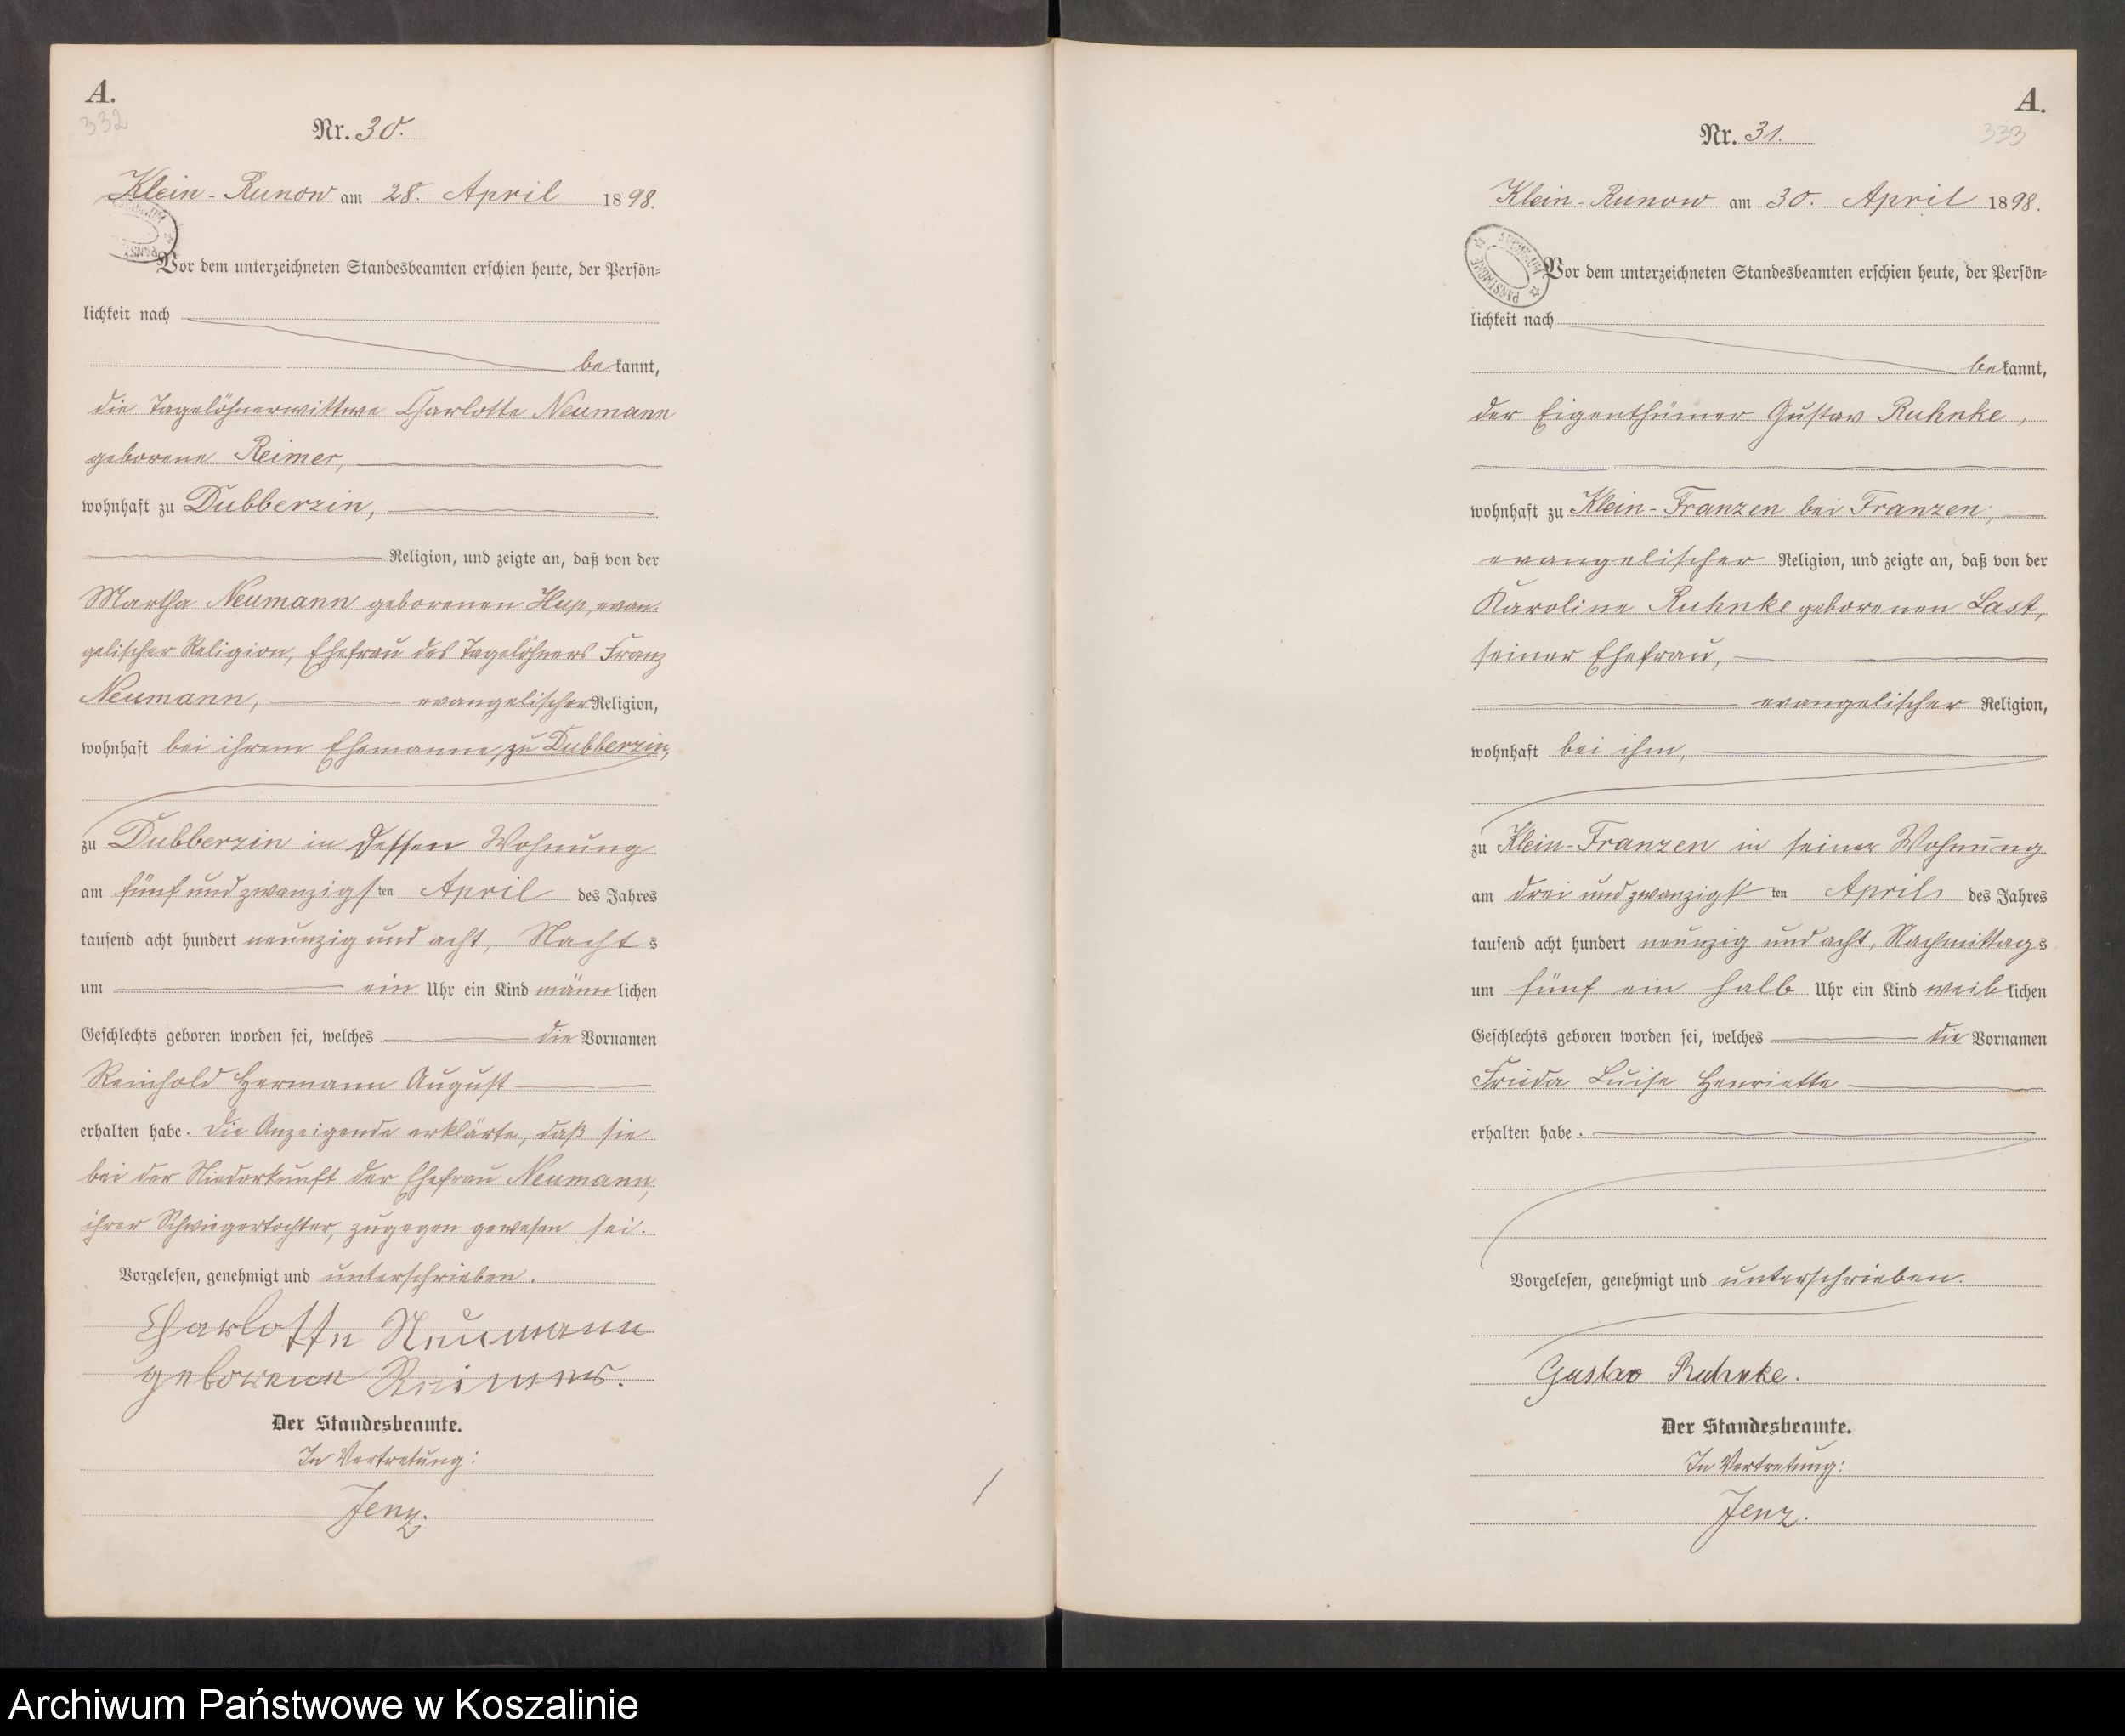 A.
332
Nr. 30.
Klein-Runow am 28. April 1898.
Vor dem unterzeichneten Standesbeamten erschien heute, der Persön-
lichkeit nach
bekannt,
die Tagelöhnerwittwe Charlotte Neumann
geborene Reimer,
wohnhaft zu Dubberzin,
Religion, und zeigte an, daß von der
Martha Neumann geborenen evan-
gelischer Religion, Ehefrau des Tagelöhners Franz
Neumann, evangelischer Religion,
wohnhaft bei ihrem Ehemanne, zu Dubberzin,
zu Dubberzin in dessen Wohnung
am fünf und zwanzigsten April des Jahres
tausend acht hundert neunzig und acht, Nachts
um ein Uhr ein Kind männlichen
Geschlechts geboren worden sei, welches die Vornamen
Reinhold Hermann August
erhalten habe. Die Anzeigende erklärte, daß sie
bei der Niederkunft der Ehefrau Neumann,
ihrer Schwiegertochter, zugegen gewesen sei.
Vorgelesen, genehmigt und unterschrieben.
Charlotte Neumann
geborene Reimer.
Der Standesbeamte.
In Vertretung:
Jenz.
A.
333
Nr. 31.
Klein-Runow am 30. April 1898.
ARCHIWUM PAŃSTWOWE
Vor dem unterzeichneten Standesbeamten erschien heute, der Persön-
lichkeit nach
bekannt,
der Eigenthümer Gustav Ruhnke,
wohnhaft zu Klein-Franzen bei Franzen,
evangelischer Religion, und zeigte an, daß von der
Karoline Ruhnke geborenen Last,
seiner Ehefrau,
evangelischer Religion,
wohnhaft bei ihm,
zu Klein-Franzen in seiner Wohnung
am drei und zwanzigsten April des Jahres
tausend acht hundert neunzig und acht, Nachmittags
um fünf ein halb Uhr ein Kind weiblichen
Geschlechts geboren worden sei, welches die Vornamen
Frieda Luise Henriette
erhalten habe.
Vorgelesen, genehmigt und unterschrieben.
Gustav Ruhnke.
Der Standesbeamte.
In Vertretung:
Jenz.
Archiwum Państwowe w Koszalinie